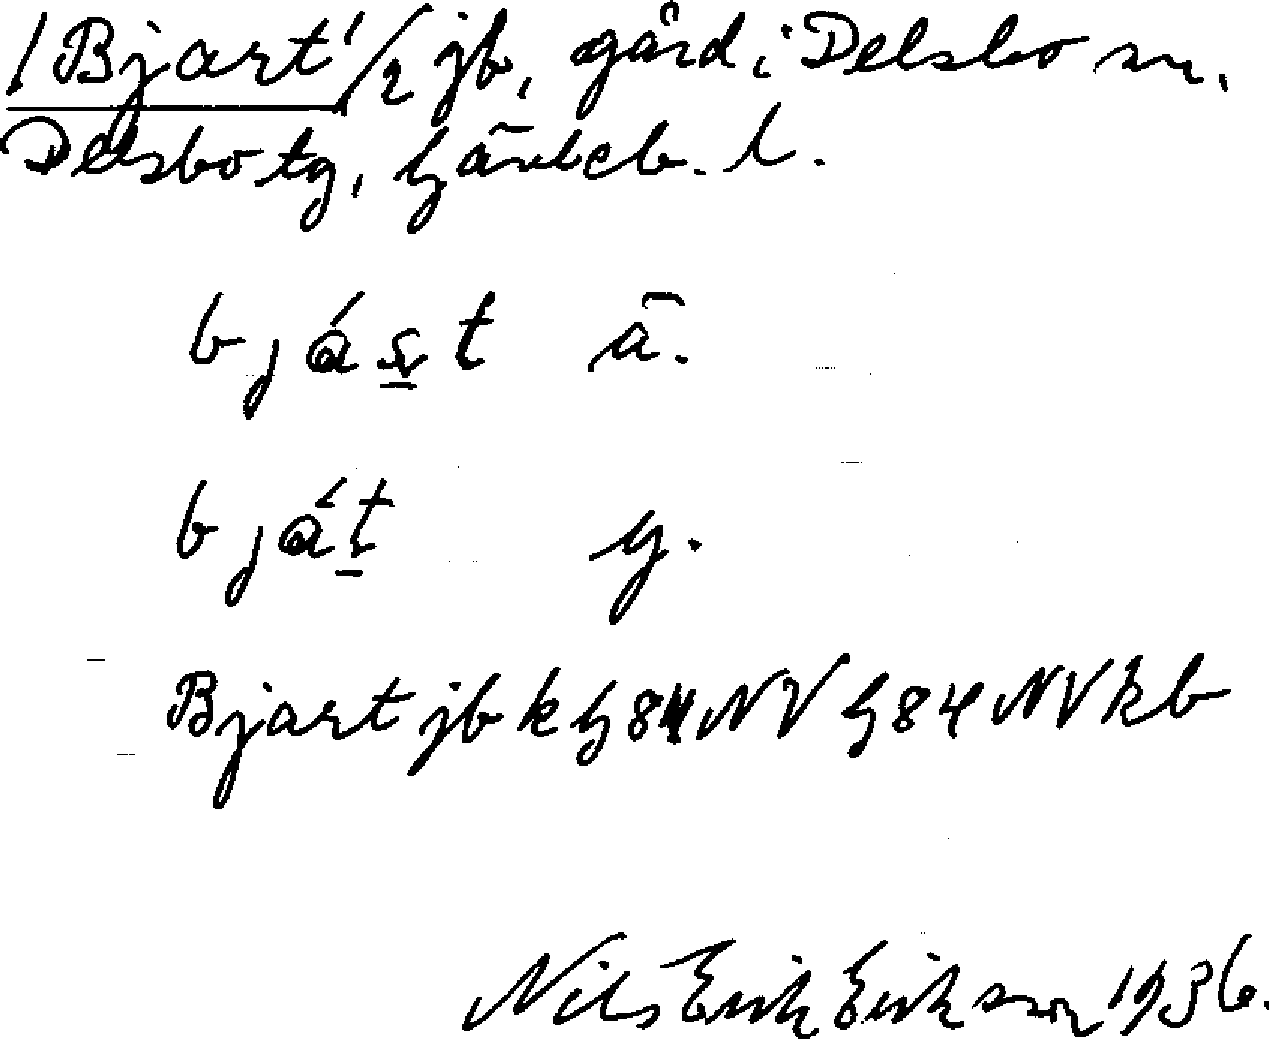 /Bjart'/2 jb, gård i Delsbo sn.
Delsbo tg, Gävleb. l.
bjást ä.
bját y.
Bjart jb k G84NV G84NVkb
Nils Erik Eriksson 1936.